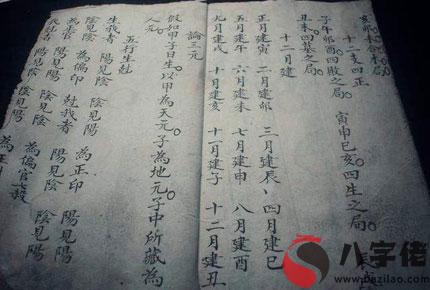 亥卯未合木之局
十二支四正
子午卯酉四敗之局。 寅申巳亥。四生之局。 辰戌
丑未四墓之局。
十二月建
正月建寅 二月建卯 三月建辰 四月建巳
五月建午 六月建未 七月建申 八月建酉
九月建戌 十月建亥 十一月建子 十二月建丑
論三元
假如甲子日生。以甲為天元。子為地元。子中所藏為
人元。
五行生尅
生我者
為正印
為偏印
尅我者
為偏官七殺
為正
八字佬
www.bazilao.com